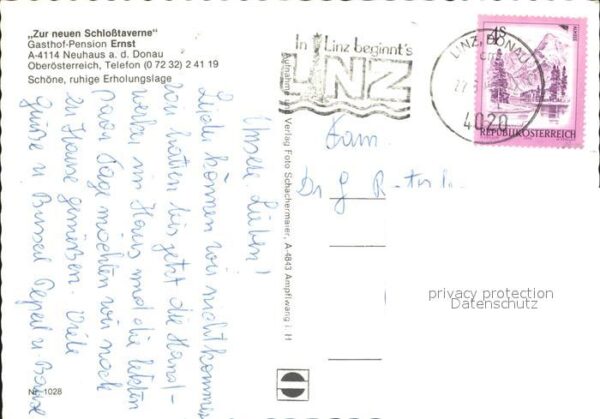 „Zur neuen Schloßtaverne"
Gasthof-Pension Ernst
A-4114 Neuhaus a. d. Donau
Oberösterreich, Telefon (0 72 32) 2 41 19
Schöne, ruhige Erholungslage
In Linz beginnt's
LINZ
LINZ, DONAU
4020
4S
REPUBLIK ÖSTERREICH
Fam.
Dr G
Unsere Lieben!
Leider können wir nicht kommen
wir hatten bis jetzt die Hand-
werker im Haus und die letzten
paar Tage möchten wir noch
zu Hause genießen. Viele
Grüße u. Bussel
Aufnahme und Verlag Foto Schachermaier, A-4843 Ampflwang i. H
privacy protection
Datenschutz
Nr. 1028